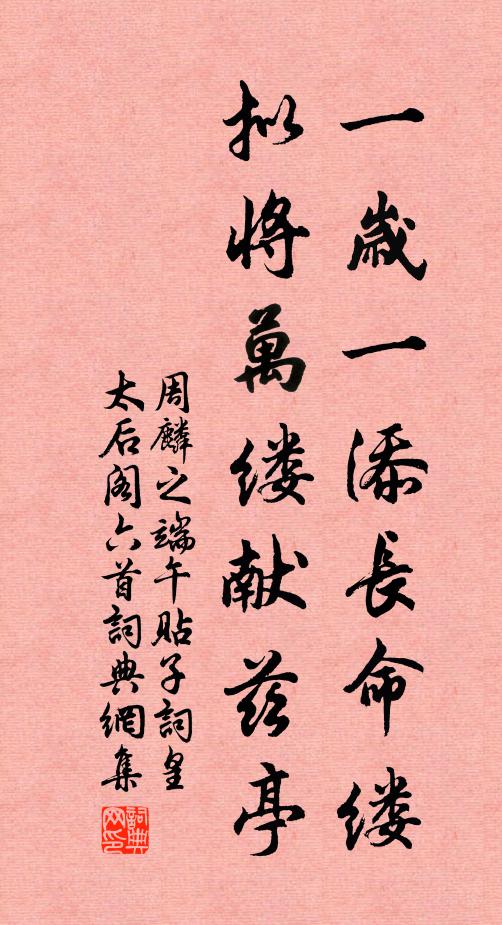 一歲一添長命缕
拟將萬缕献兹亭
周麟之端午貼子詞皇
太后阁六首詞典網集
詞典网印